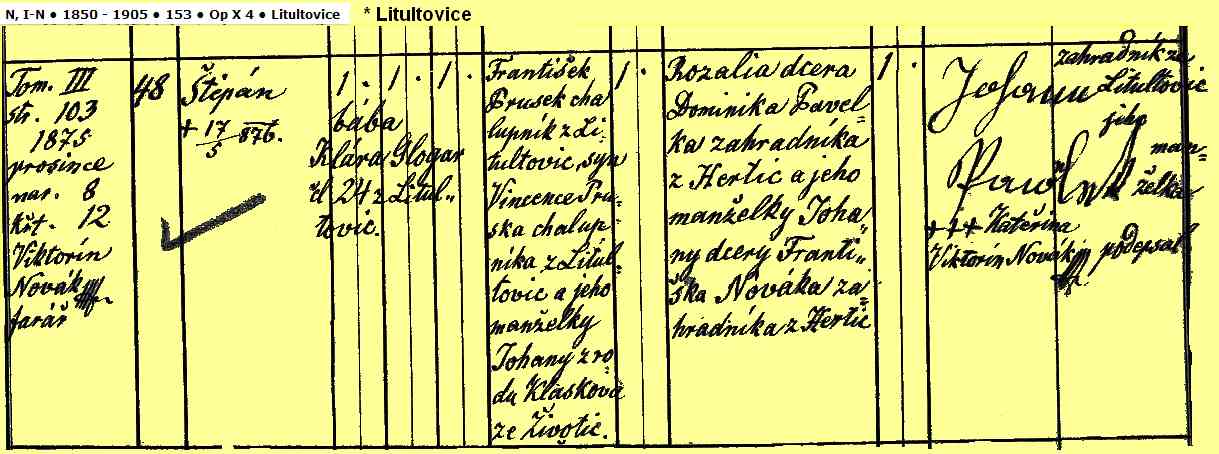 N, I-N • 1850 - 1905 • 153 • Op X 4 • Litultovice
* Litultovice
Tom. III
str. 103
1875
prosince
nar. 8
křt. 12
Viktorín
Novák
farář
48
Štěpán
+ 17/5 876.
1 · 1 · 1 ·
bába
Klára Glogar
čl 24 z Litul„
tovic.
František
Prusek cha
lupník z Li„
tultovic, syn
Vincence Pru„
ska chalup„
níka z Litul„
tovic a jeho
manželky
Johany z ro„
du Klásková
ze Životic.
1 ·
Rozalia dcera
Dominika Pavel„
ka zahradníka
z Hertic a jeho
manželky Joha„
ny dcery Franti„
ška Nováka za„
hradníka z Hertic
1 ·
Johann
Pawlek
zahradník ze
Litultovic
jeho
man„
želka
+++ Kateřina
Viktorín Novák podepsal